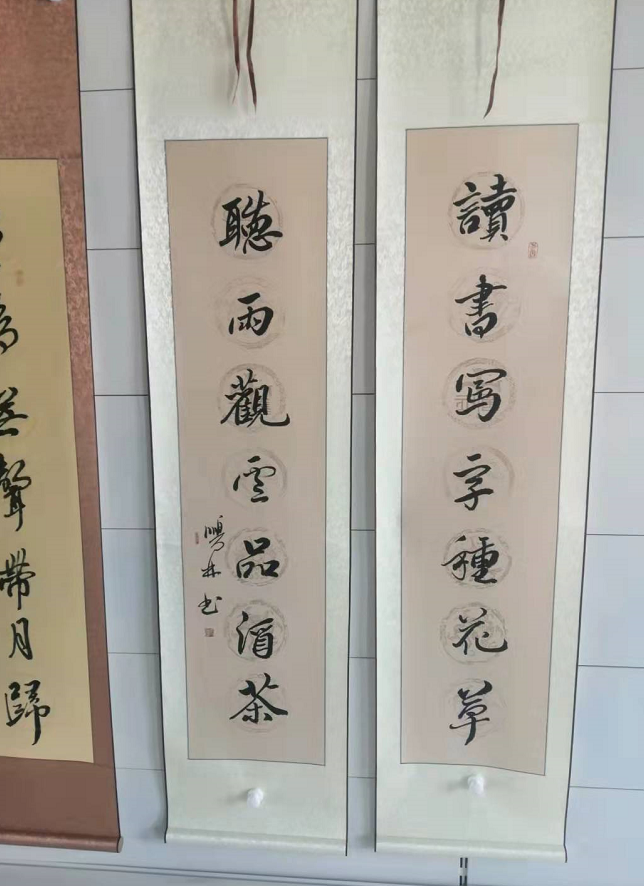 讀書寫字種花草
聽雨觀雲品酒茶
鵬林书
聲帶月歸